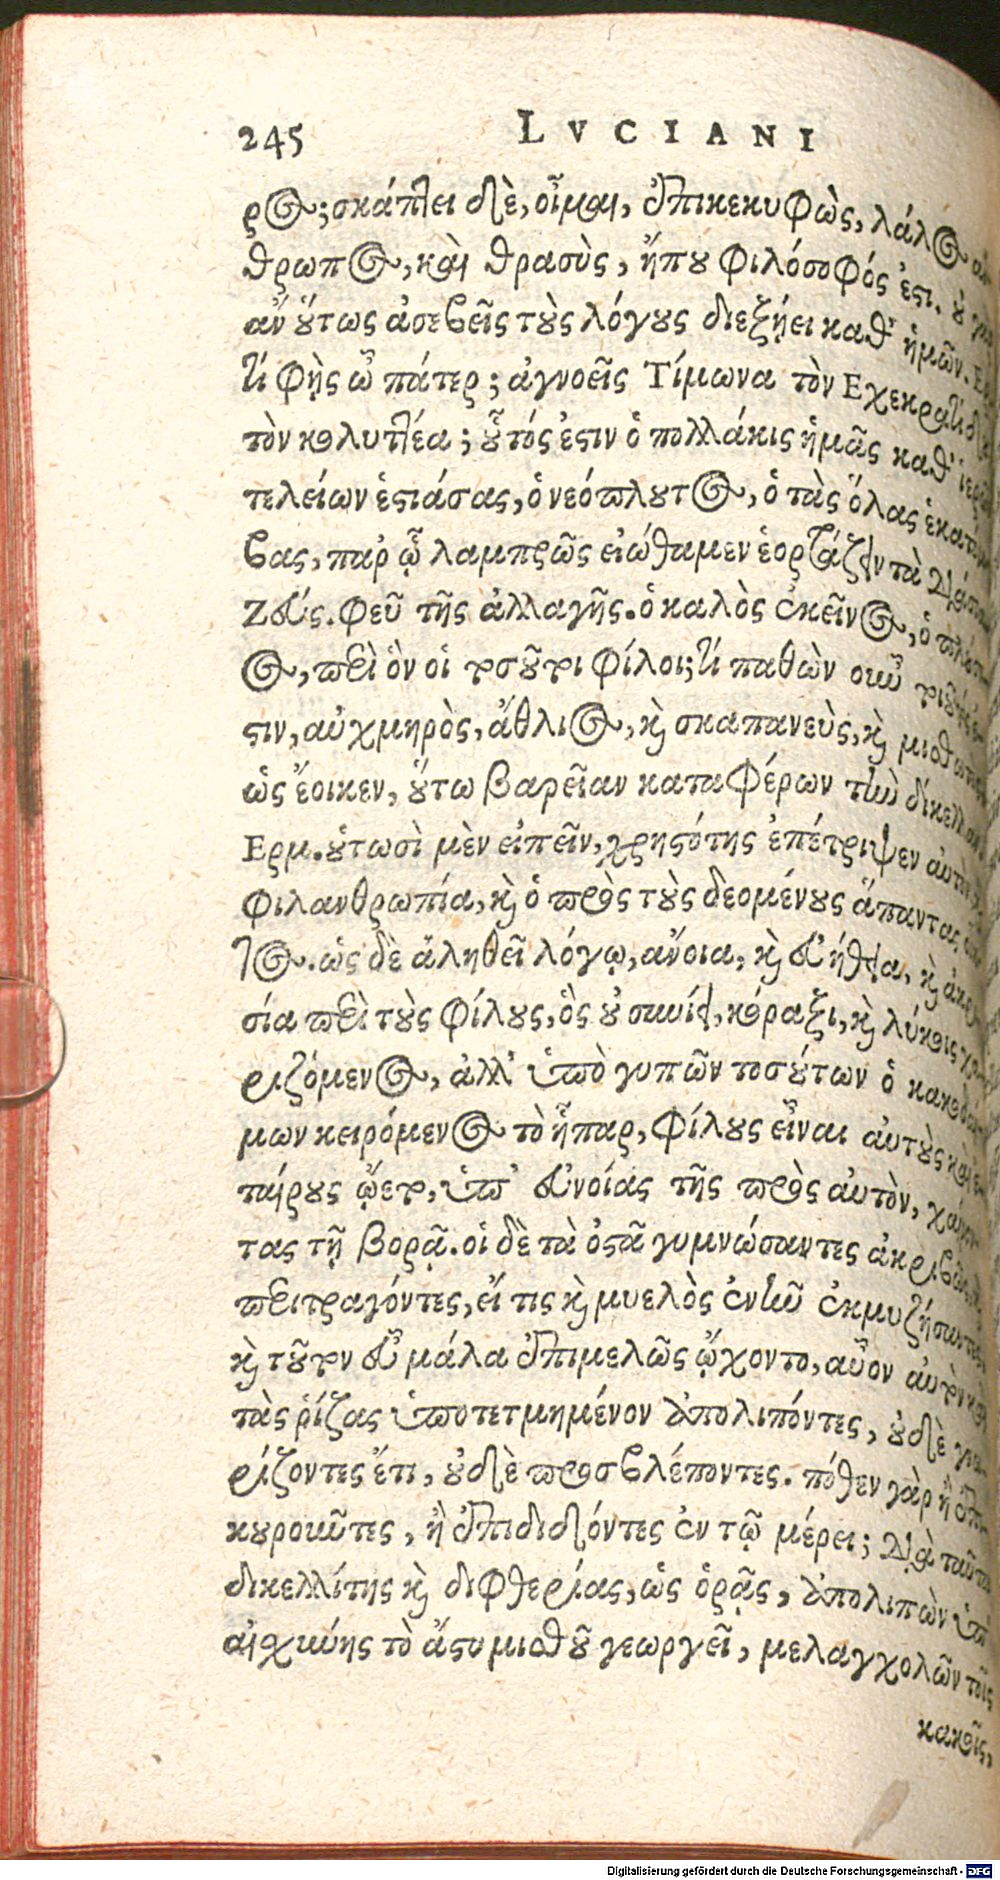 245 LVCIANI
ρος; σκάπτει δὲ, οἶμαι, ἐπικεκυφὼς, λάλος ἄν
θρωπος, καὶ θρασὺς, ἤπου φιλόσοφός ἐστι. οὐ γὰρ
ἂν οὕτως ἀσεβεῖς τοὺς λόγους διεξῄει καθ' ἡμῶν. Ερ
τί φῂς ὦ πάτερ; ἀγνοεῖς Τίμωνα τὸν Εχεκρατίδου
τὸν κολυττέα; οὗτός ἐστιν ὁ πολλάκις ἡμᾶς καθ' ἱερῶν
τελείων ἑστιάσας, ὁ νεόπλουτος, ὁ τὰς ὅλας ἑκατόμ
βας, παρ ᾧ λαμπρῶς εἰώθαμεν ἑορτάζειν τὰ Διάσια
Ζεύς. φεῦ τῆς ἀλλαγῆς. ὁ καλὸς ἐκεῖνος, ὁ πλούσι
ος, περὶ ὃν οἱ τοσοῦτοι φίλοι; τί παθὼν οὖν τοιοῦτός ἐ
στιν, αὐχμηρὸς, ἄθλιος, καὶ σκαπανεὺς, καὶ μισθωτὸς
ὡς ἔοικεν, οὕτω βαρεῖαν καταφέρων τὴν δίκελλαν
Ερμ. οὑτωσὶ μὲν εἰπεῖν, χρηστότης ἐπέτριψεν αὐτὸν καὶ
φιλανθρωπία, καὶ ὁ πρὸς τοὺς δεομένους ἅπαντας οἶκ
τος. ὡς δὲ ἀληθεῖ λόγῳ, ἄνοια, καὶ εὐήθεια, καὶ ἀκρι
σία περὶ τοὺς φίλους, ὃς οὐ συνίει, κόραξι, καὶ λύκοις χα
ριζόμενος, ἀλλ' ὑπὸ γυπῶν τοσούτων ὁ κακοδαί
μων κειρόμενος τὸ ἧπαρ, φίλους εἶναι αὐτοὺς καὶ ἑ
ταίρους ᾤετο, ὑπ' εὐνοίας τῆς πρὸς αὐτὸν, χαίρον
τας τῇ βορᾷ. οἱ δὲ τὰ ὀστᾶ γυμνώσαντες ἀκριβῶς, καὶ
περιτραγόντες, εἴ τις καὶ μυελὸς ἐνῆν ἐκμυζήσαντες
καὶ τοῦτον εὖ μάλα ἐπιμελῶς ᾤχοντο, αὖον αὐτὸν καὶ
τὰς ῥίζας ὑποτετμημένον ἀπολιπόντες, οὐδὲ γνω
ρίζοντες ἔτι, οὐδὲ προσβλέποντες. πόθεν γὰρ ἢ ἐπι
κουροῦντες, ἢ ἐπιδιδόντες ἐν τῷ μέρει; Διὰ ταῦτα
δικελλίτης καὶ διφθερίας, ὡς ὁρᾷς, ἀπολιπὼν ὑπ'
αἰσχύνης τὸ ἄστυ μισθοῦ γεωργεῖ, μελαγχολῶν τοῖς
κακοῖς,
Digitalisierung gefördert durch die Deutsche Forschungsgemeinschaft - DFG